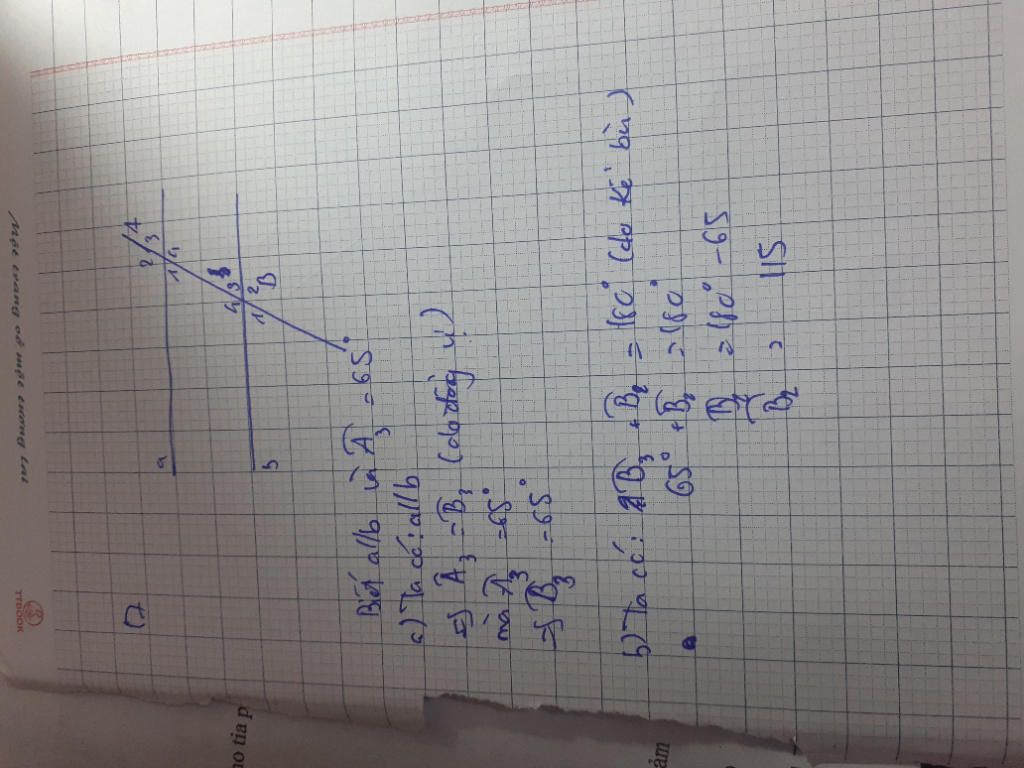 Mặc trang vở viết tương lai
TBOOK
a
2 3 A
1 4
b
4 3
1 2 B
Biết a//b và A3 = 65°
a) Ta có: a//b
=> A3 = B3 (do đồng vị)
mà A3 = 65°
=> B3 = 65°
b) Ta có: B3 + B2 = 180° (do kề bù)
65° + B2 = 180°
B2 = 180° - 65
B2 = 115
ho tia p